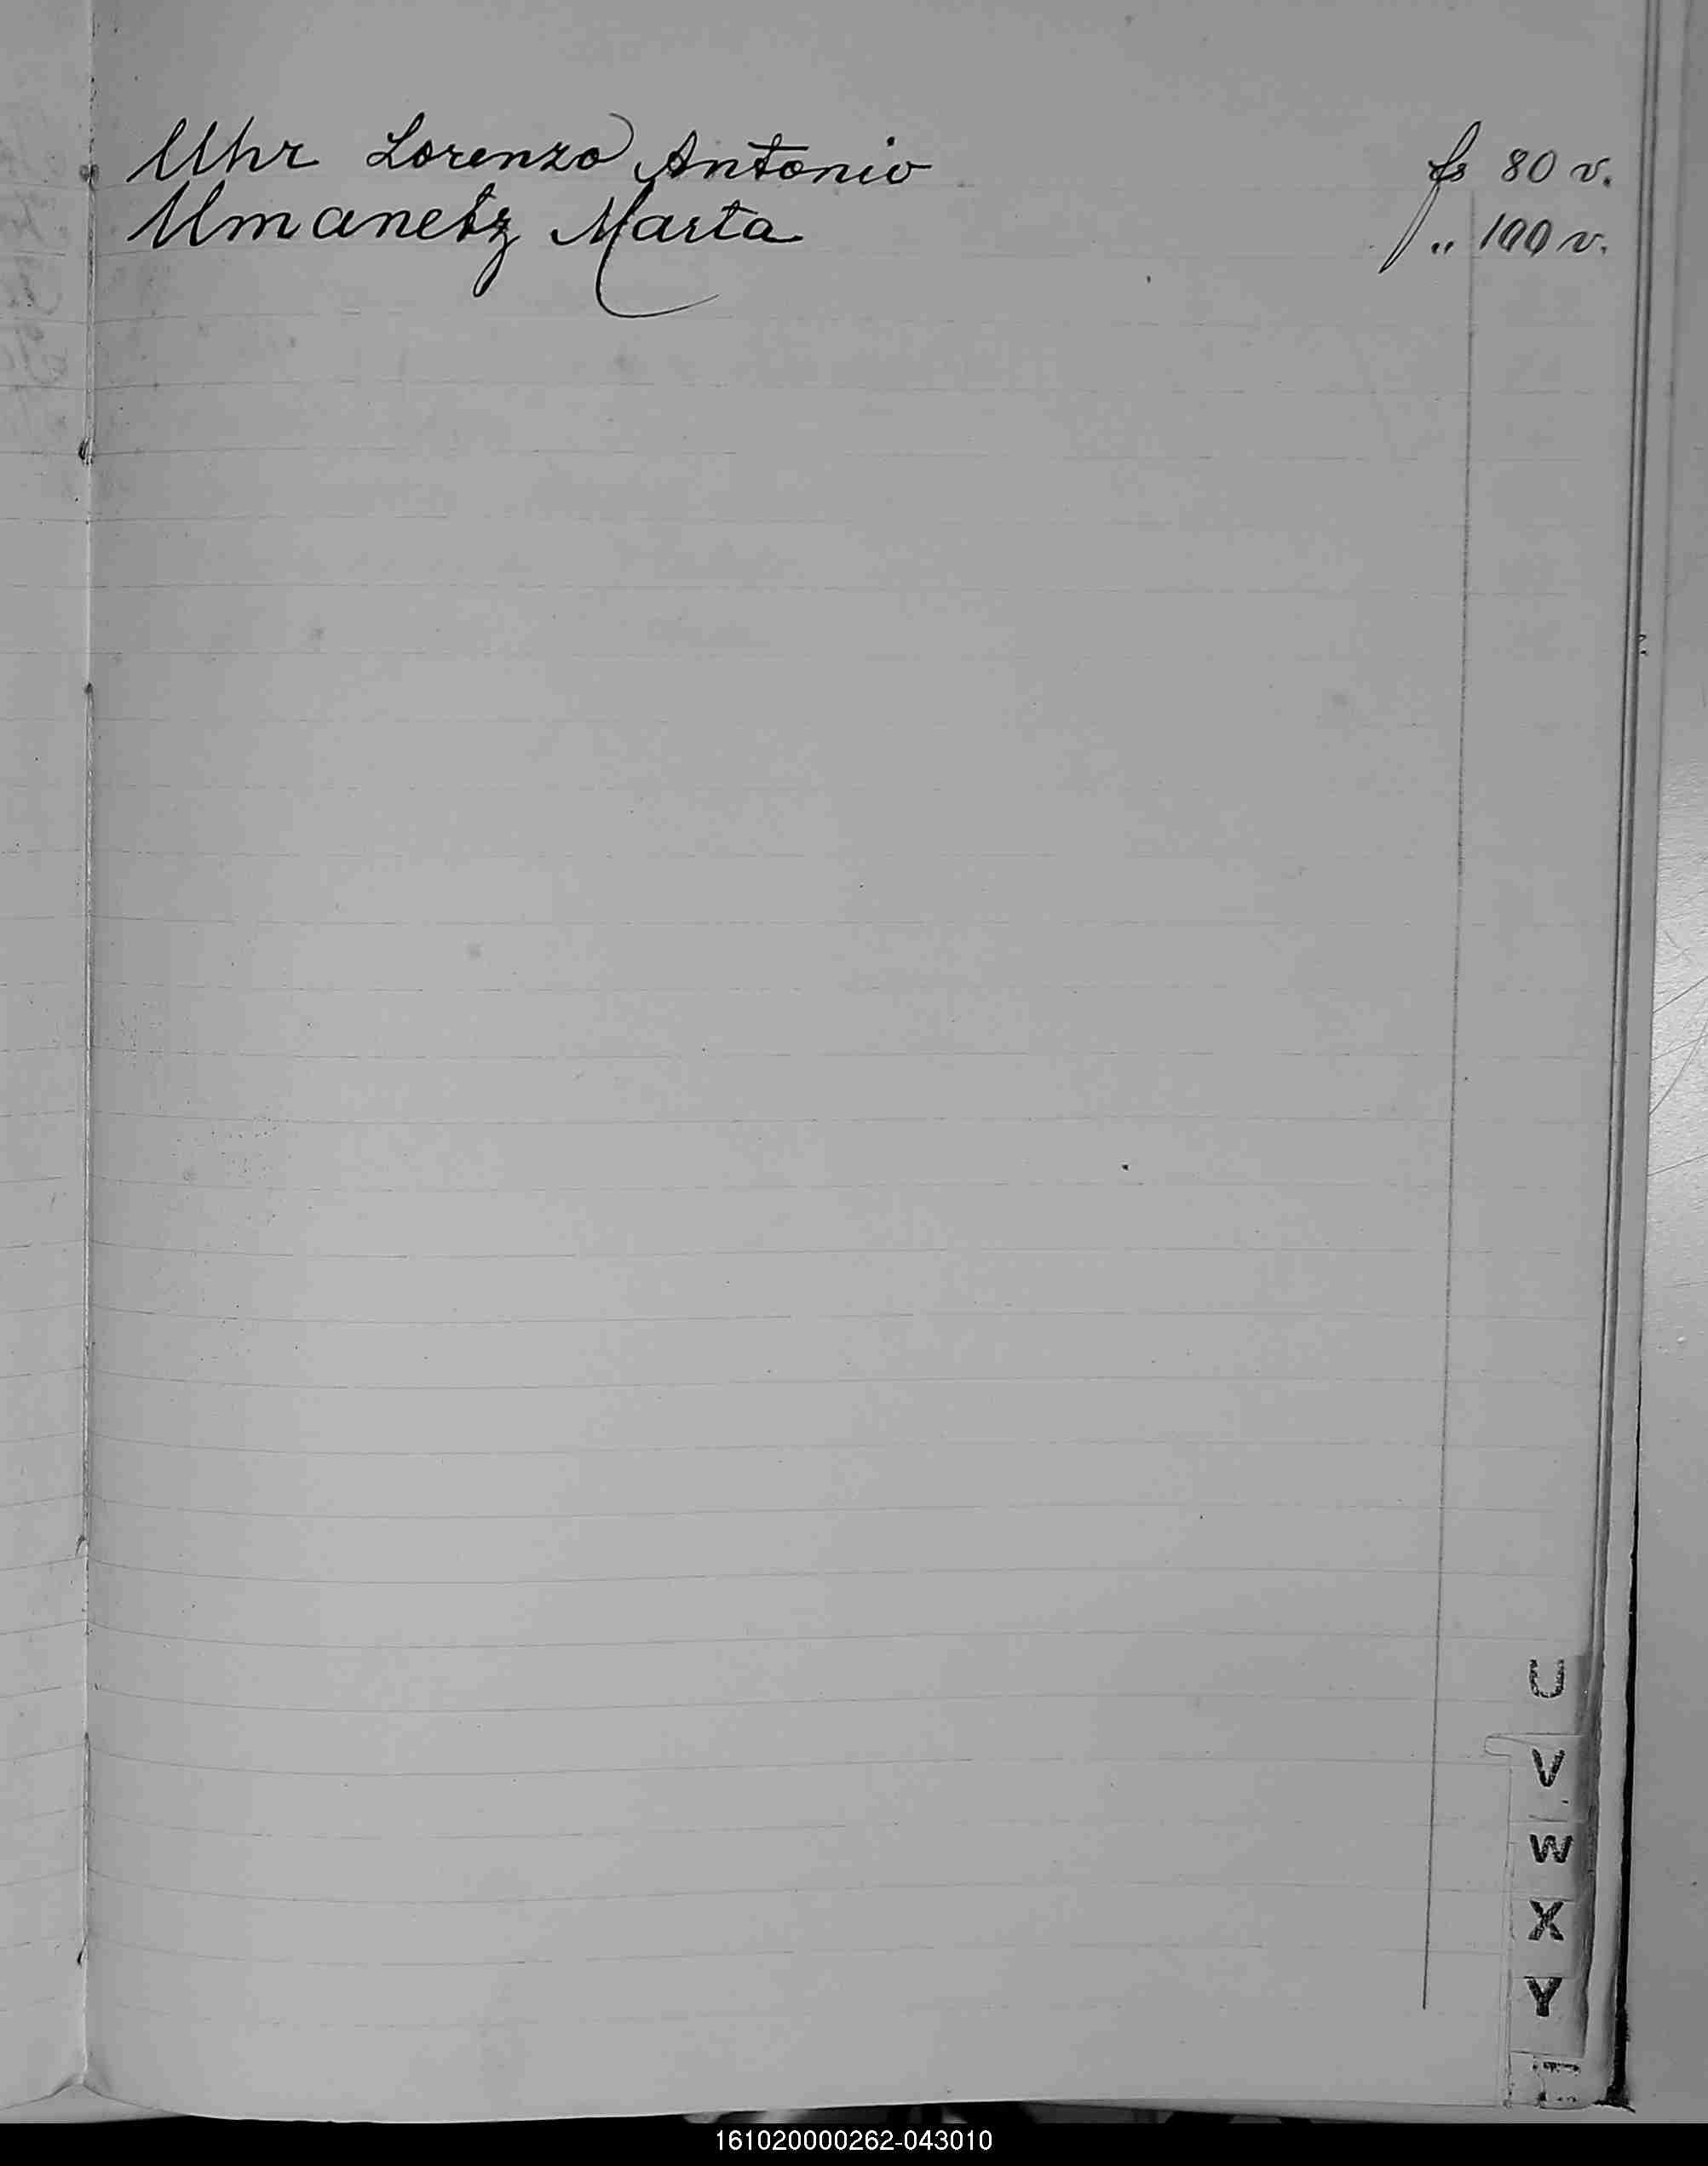 Uhr Lorenzo Antonio fs 80 v.
Umanetz Marta " 100 v.
U
V
W
X
Y
161020000262-043010